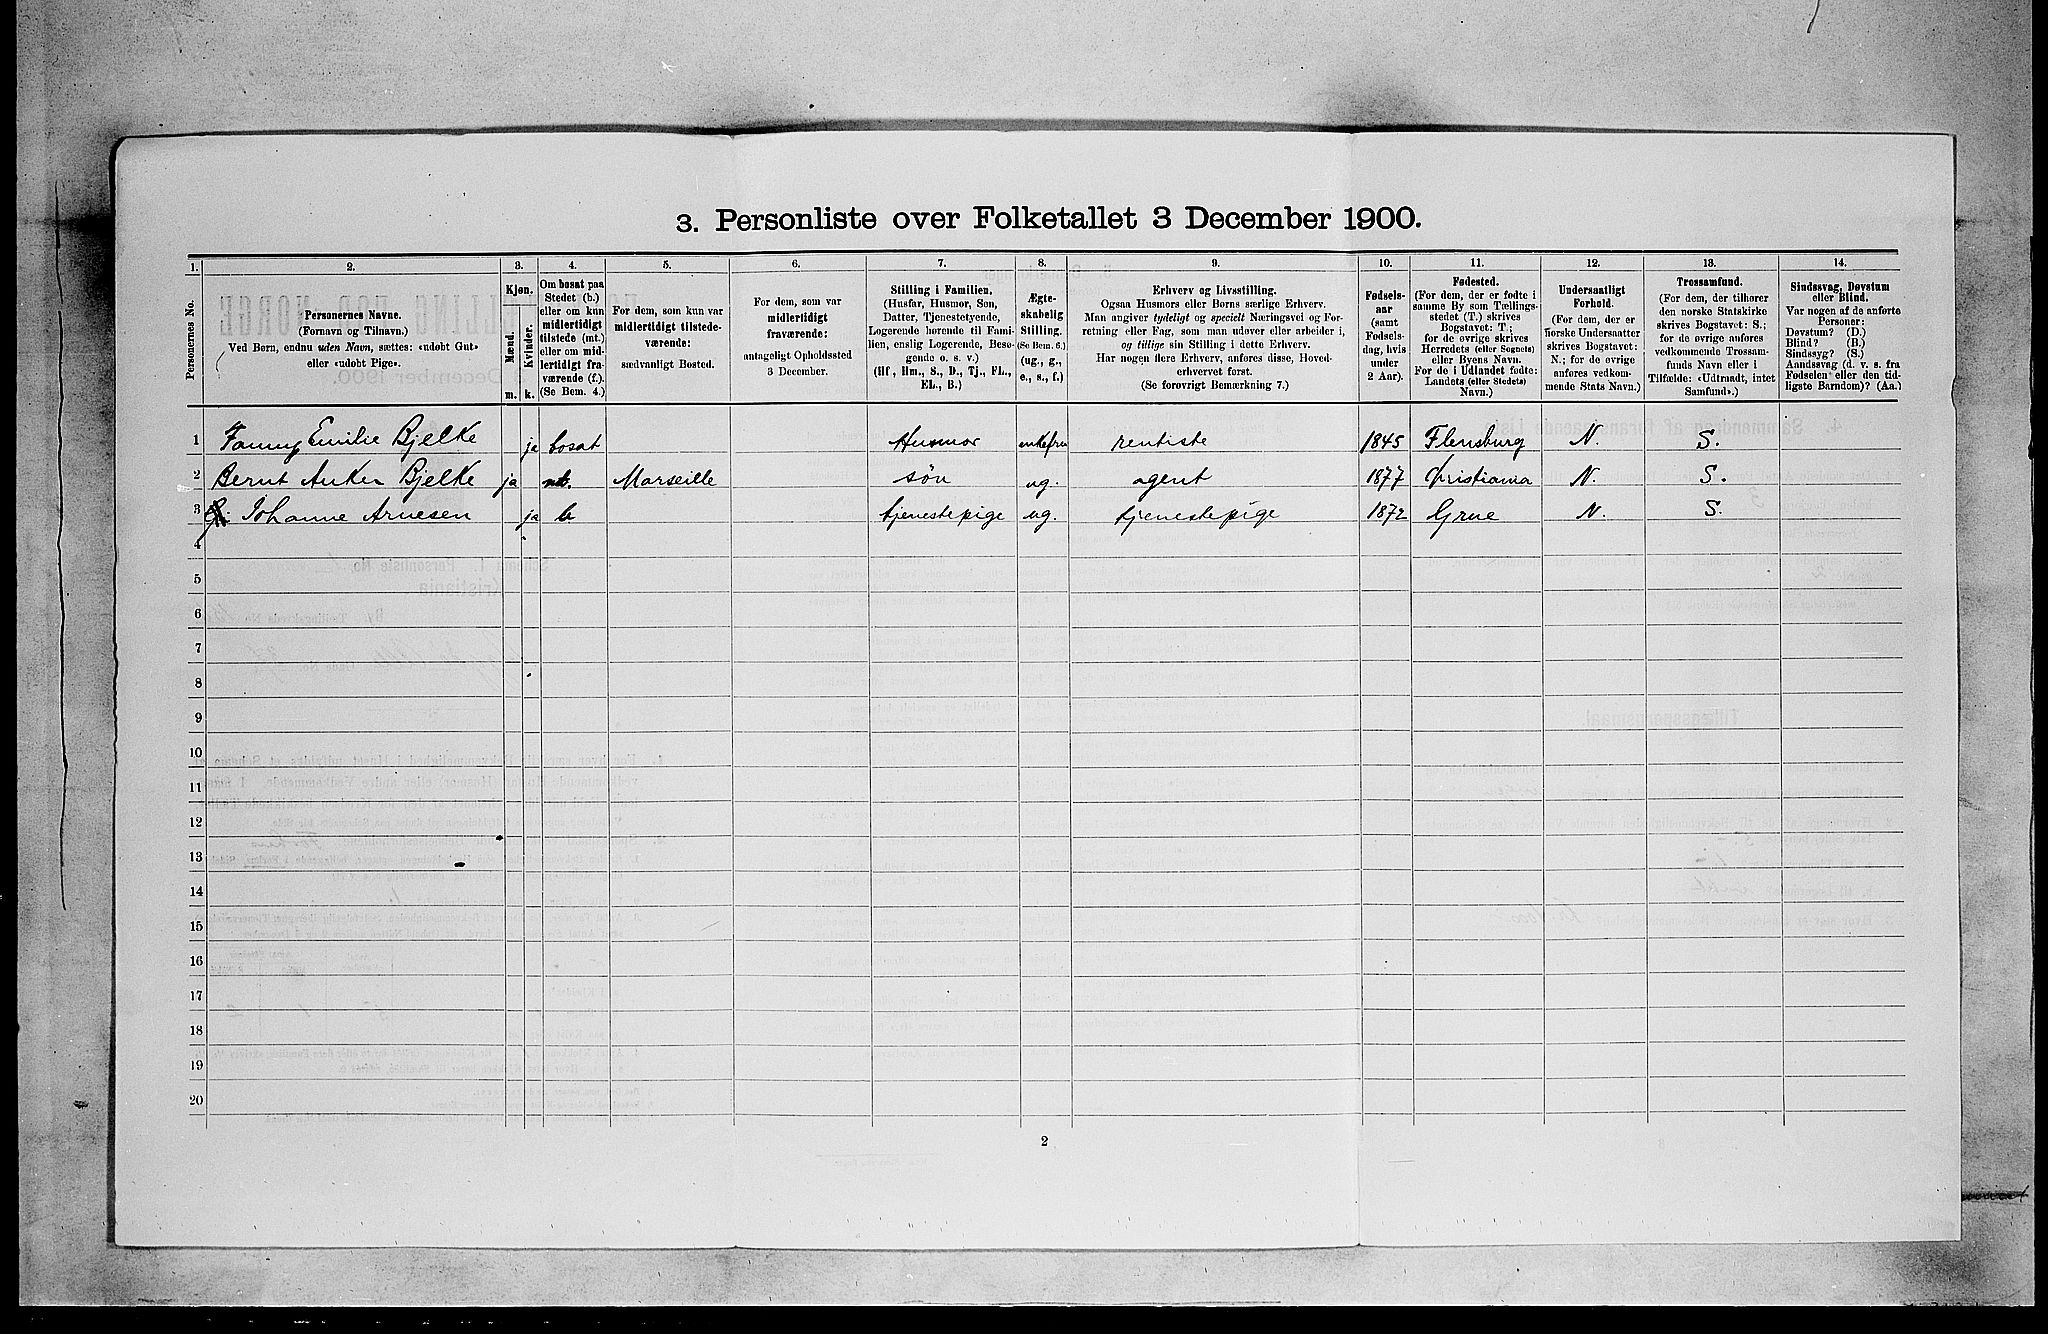 3. Personliste over Folketallet 3 December 1900.
1. 2. 3. 4. 5. 6. 7. 8. 9. 10. 11. 12. 13. 14.
Personernes No.
Personernes Navne.
(Fornavn og Tilnavn.)
Ved Børn, endnu uden Navn, sættes: «udøbt Gut»
eller «udøbt Pige».
Kjøn.
Mænd.
Kvinder.
m. k.
Om bosat paa
Stedet (b.)
eller om kun
midlertidigt
tilstede (mt.)
eller om mid-
lertidigt fra-
værende (f.).
(Se Bem. 4.)
For dem, som kun var
midlertidigt tilstede-
værende:
sædvanligt Bosted.
For dem, som var
midlertidigt
fraværende:
antageligt Opholdssted
3 December.
Stilling i Familien.
(Husfar, Husmor, Søn,
Datter, Tjenestetyende,
Logerende hørende til Fami-
lien, enslig Logerende, Besø-
gende o. s. v.)
(Hf, Hm., S., D., Tj., FL.,
EL., B.)
Ægte-
skabelig
Stilling.
(Se Bem. 6.)
(ug., g.,
e., s., f.)
Erhverv og Livsstilling.
Ogsaa Husmors eller Børns særlige Erhverv.
Man angiver tydeligt og specielt Næringsvei og For-
retning eller Fag, som man udøver eller arbeider i,
og tillige sin Stilling i dette Erhverv.
Har nogen flere Erhverv, anføres disse, Hoved-
erhvervet først.
(Se forøvrigt Bemærkning 7.)
Fødsels-
aar
(samt
Fødsels-
dag, hvis
under
2 Aar).
Fødested.
(For dem, der er fødte i
samme By som Tællings-
stedet (T.) skrives
Bogstavet: T;
for de øvrige skrives
Herredets (eller Sognets)
eller Byens Navn.
For de i Udlandet fødte:
Landets (eller Stedets)
Navn.)
Undersaatligt
Forhold.
(For dem, der er
norske Undersaatter
skrives Bogstavet:
N.; for de øvrige
anføres vedkom-
mende Stats Navn.)
Trossamfund.
(For dem, der tilhører
den norske Statskirke
skrives Bogstavet: S.;
for de øvrige anføres
vedkommende Trossam-
funds Navn eller i
Tilfælde: «Udtraadt, intet
Samfund».)
Sindssvag, Døvstum
eller Blind.
Var nogen af de anførte
Personer:
Døvstum? (D.)
Blind? (B.)
Sindssyg? (S.)
Aandssvag (d. v. s. fra
Fødselen eller den tid-
ligste Barndom)? (Aa.)
1 Fanny Emilie Bjelke ja bosat Husmor enkefru rentiste 1845 Flensburg N. S.
2 Bernt Anker Bjelke ja mt. Marseille søn ug. agent 1877 Kristiania N. S.
3 Johanne Arnesen ja b tjenestepige ug. tjenestepige 1872 Grue N. S.
4
5
6
7
8
9
10
11
12
13
14
15
16
17
18
19
20
2